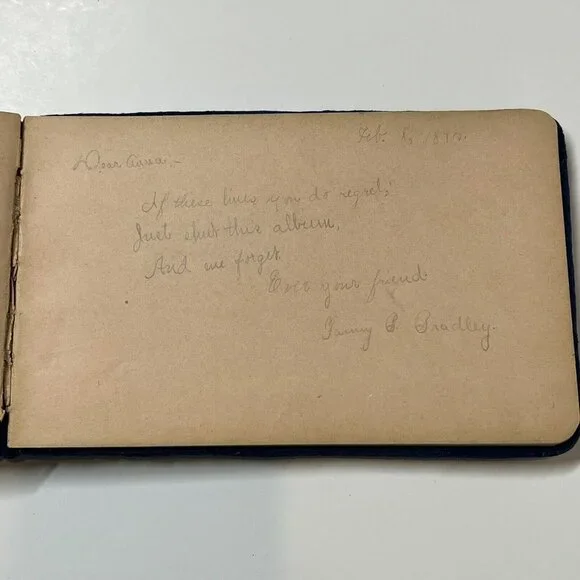 Feb. 6, 18
Dear Anna,-
If these lines you do regret,
Just shut this album,
And me forget
Ever your friend
P. Bradley.